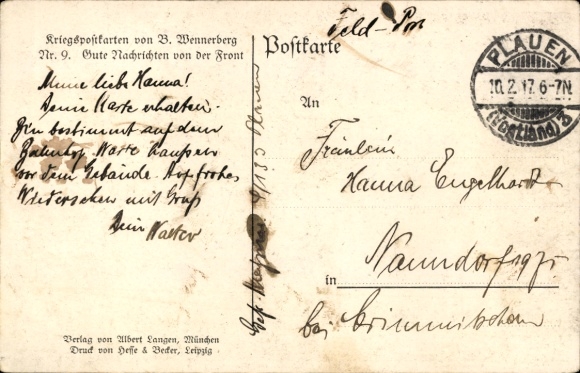 Kriegspostkarten von B. Wennerberg
Nr. 9. Gute Nachrichten von der Front
Meine liebe Hanna!
Deine Karte erhalten.
Bin bestimmt auf dem
Bahnhof. Warte draußen
vor dem Gebäude. Auf frohes
Wiedersehen mit Gruß
Dein Walter
Verlag von Albert Langen, München
Druck von Hesse & Becker, Leipzig
Postkarte
Feld-Post
PLAUEN
10.2.17. 6-7N.
(Vogtland) 3
An
Fräulein
Hanna Engelhardt
in Naundorf
bei Crimmitschau
134 Plauen